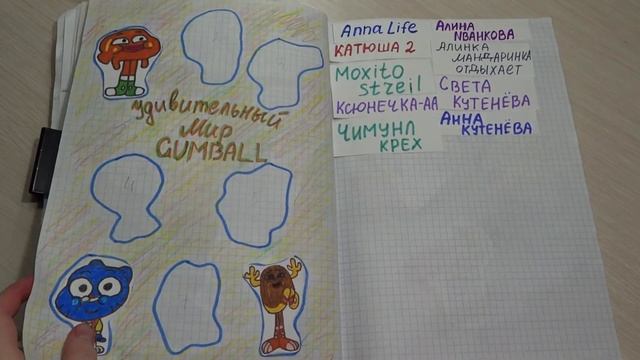 удивительный
мир
GUMBALL
Anna Life
КАТЮША 2
Moxito
streil
КСЮНЕЧКА-АА
ЧИМУНЛ
КРЕХ
АЛИНА
ИВАНКОВА
АЛИНКА
МАНДАРИНКА
ОТДЫХАЕТ
СВЕТА
КУТЕНЁВА
АННА
КУТЕНЁВА